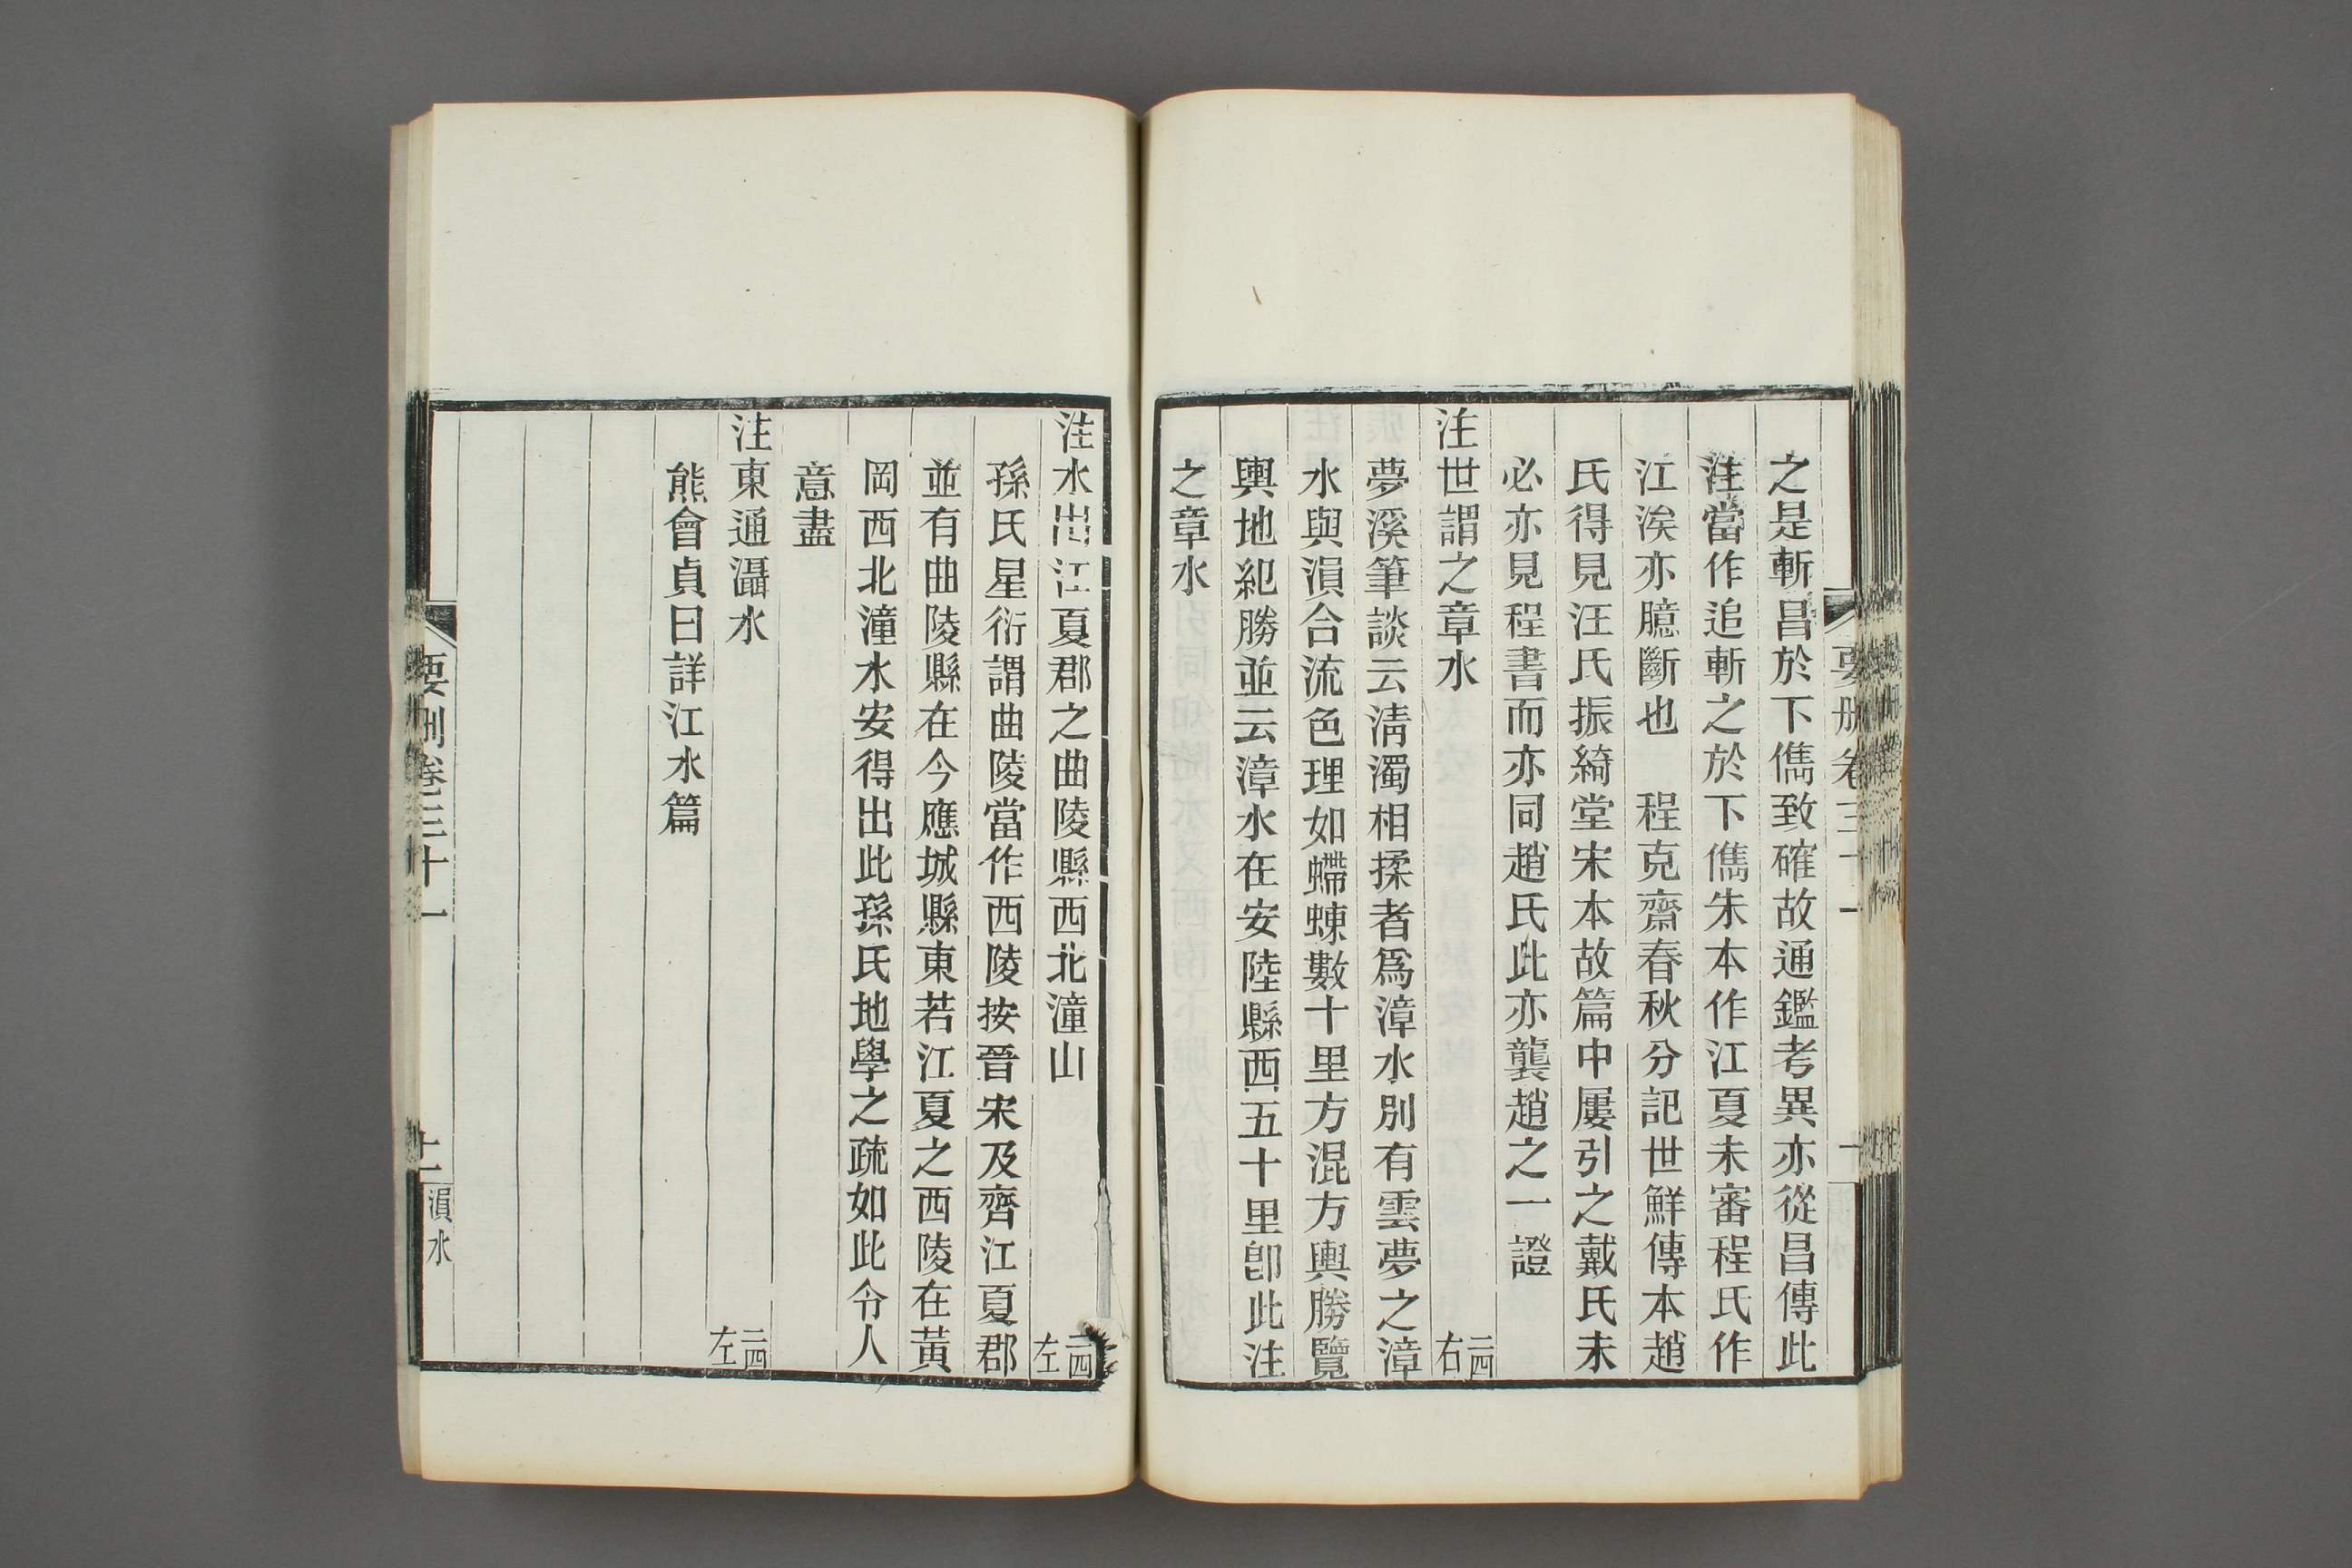 要刪卷三十一
之是斬昌於下儁致確故通鑑考異亦從昌傳此
注當作追斬之於下儁朱本作江夏未審程氏作
江涘亦臆斷也　程克齋春秋分記世鮮傳本趙
氏得見汪氏振綺堂宋本故篇中屢引之戴氏未
必亦見程書而亦同趙氏此亦襲趙之一證
注世謂之章水　二四右
夢溪筆談云淸濁相揉者爲漳水別有雲夢之漳
水與溳合流色理如螮蝀數十里方混方輿勝覽
輿地紀勝並云漳水在安陸縣西五十里卽此注
之章水
注水出江夏郡之曲陵縣西北潼山　二四左
孫氏星衍謂曲陵當作西陵按晉宋及齊江夏郡
並有曲陵縣在今應城縣東若江夏之西陵在黃
岡西北潼水安得出此孫氏地學之疏如此令人
意盡
注東通灄水　二四左
熊會貞曰詳江水篇
要刪卷三十一　十一　溳水